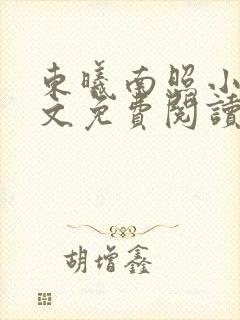 東曦南照小
文免費閱讀
胡增鑫